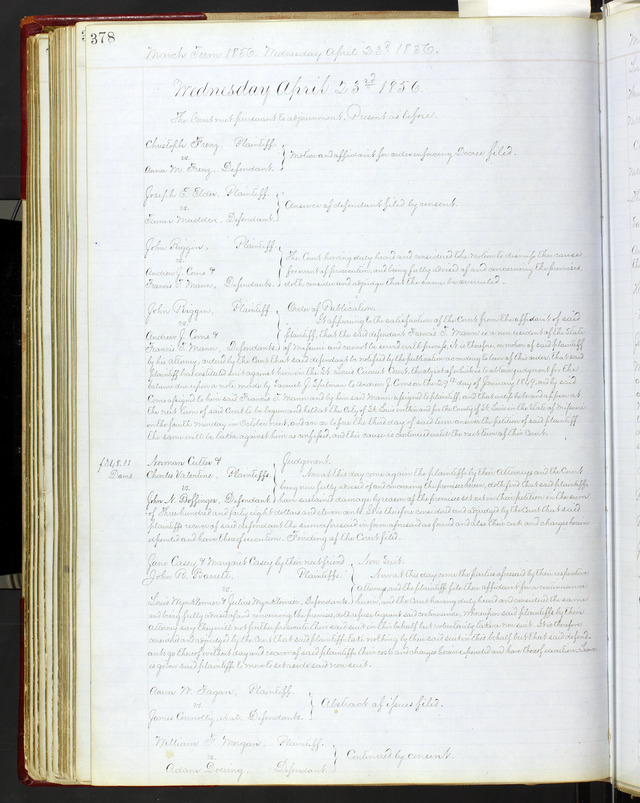 378
March Term 1856. Wednesday April 23d 1856.
Wednesday April 23rd 1856
The Court met pursuant to adjournment. Present as before.
Christoph Freng, Plaintiff
vs.
Anna M. Freng, Defendant.
Motion and affidavit for order enforcing Decree filed.
Joseph E. Elder, Plaintiff
vs.
Defendant.
Answer of defendant filed by consent.
John Riggin, Plaintiff
vs.
Andrew J. Coons &
Francis T. Mann, Defendants.
The Court having duly heard and considered the motion to dismiss this cause
for want of prosecution, and being fully advised of and concerning the premises,
doth consider and adjudge that the same be overruled.
John Riggin, Plaintiff
vs.
Andrew J. Coons &
Francis T. Mann, Defendants
Order of Publication.
It appearing to the satisfaction of the Court from the affidavit of said
plaintiff, that the said defendant Francis T. Mann is a non resident of the State
of Missouri and cannot be served with process. It is therefore, on motion of said plaintiff
by his attorney, ordered by the Court that said defendant be notified by the publication according to law of this order, that said
Plaintiff has instituted suit against him in the St. Louis Circuit Court, the object of which is to obtain judgment for the
balance due upon a note made by Samuel J. to Andrew J. Coons on the 29th day of January 1849, and by said
Coons assigned to him said Francis T. Mann, and by him said Mann assigned to plaintiff, and that unless he be and appear at
the next term of said Court to be begun and held at the City of St. Louis within and for the County of St. Louis in the State of Missouri
on the fourth Monday in October next, and on or before the third day of said term answer the petition of said plaintiff,
the same will be taken against him as confessed, and this cause is continued until the next term of this Court.
$348.00
Dam.
Norman Cutter &
Charles Valentine, Plaintiffs
vs.
John N. Bofinger, Defendant
Judgment.
Now at this day come again the plaintiffs by their Attorneys and the Court
being now fully advised of and concerning the premises herein, doth find that said plaintiffs
have sustained damage by reason of the premises set out in their petition in the sum
of Three hundred and forty eight dollars and cents. It is therefore considered and adjudged by the Court that said
plaintiffs recover of said defendant the sum aforesaid in form aforesaid as found and also their costs and charges herein
expended and have thereof execution. Finding of the Court filed.
Jane Casey & Margaret Casey by their next friend
John R. Barrett, Plaintiffs.
vs.
Louis Mynkhoman & Julius Mynkhoman, Defendants
Non Suit.
Now at this day come the parties aforesaid by their respective
Attorneys, and the plaintiffs file their affidavit for a continuance
herein, and the Court having duly heard and considered the same
and being fully advised of and concerning the premises, doth refuse to grant said continuance. Whereupon said plaintiffs by their
Attorney say they will not further prosecute their said suit in this behalf but voluntarily take a non suit. It is therefore
considered and adjudged by the Court that said plaintiffs take nothing by their said suit in this behalf but that said defend-
ants go thereof without day and recover of said plaintiffs their costs and charges herein expended and have thereof execution. Leave
is given said plaintiffs to move to set aside said non suit.
Aaron W. Fagan, Plaintiff.
vs.
James Connolly, et al. Defendants.
Abstract of issues filed.
William F. Morgan, Plaintiff.
vs.
Adam Doering, Defendant.
Continued by consent.